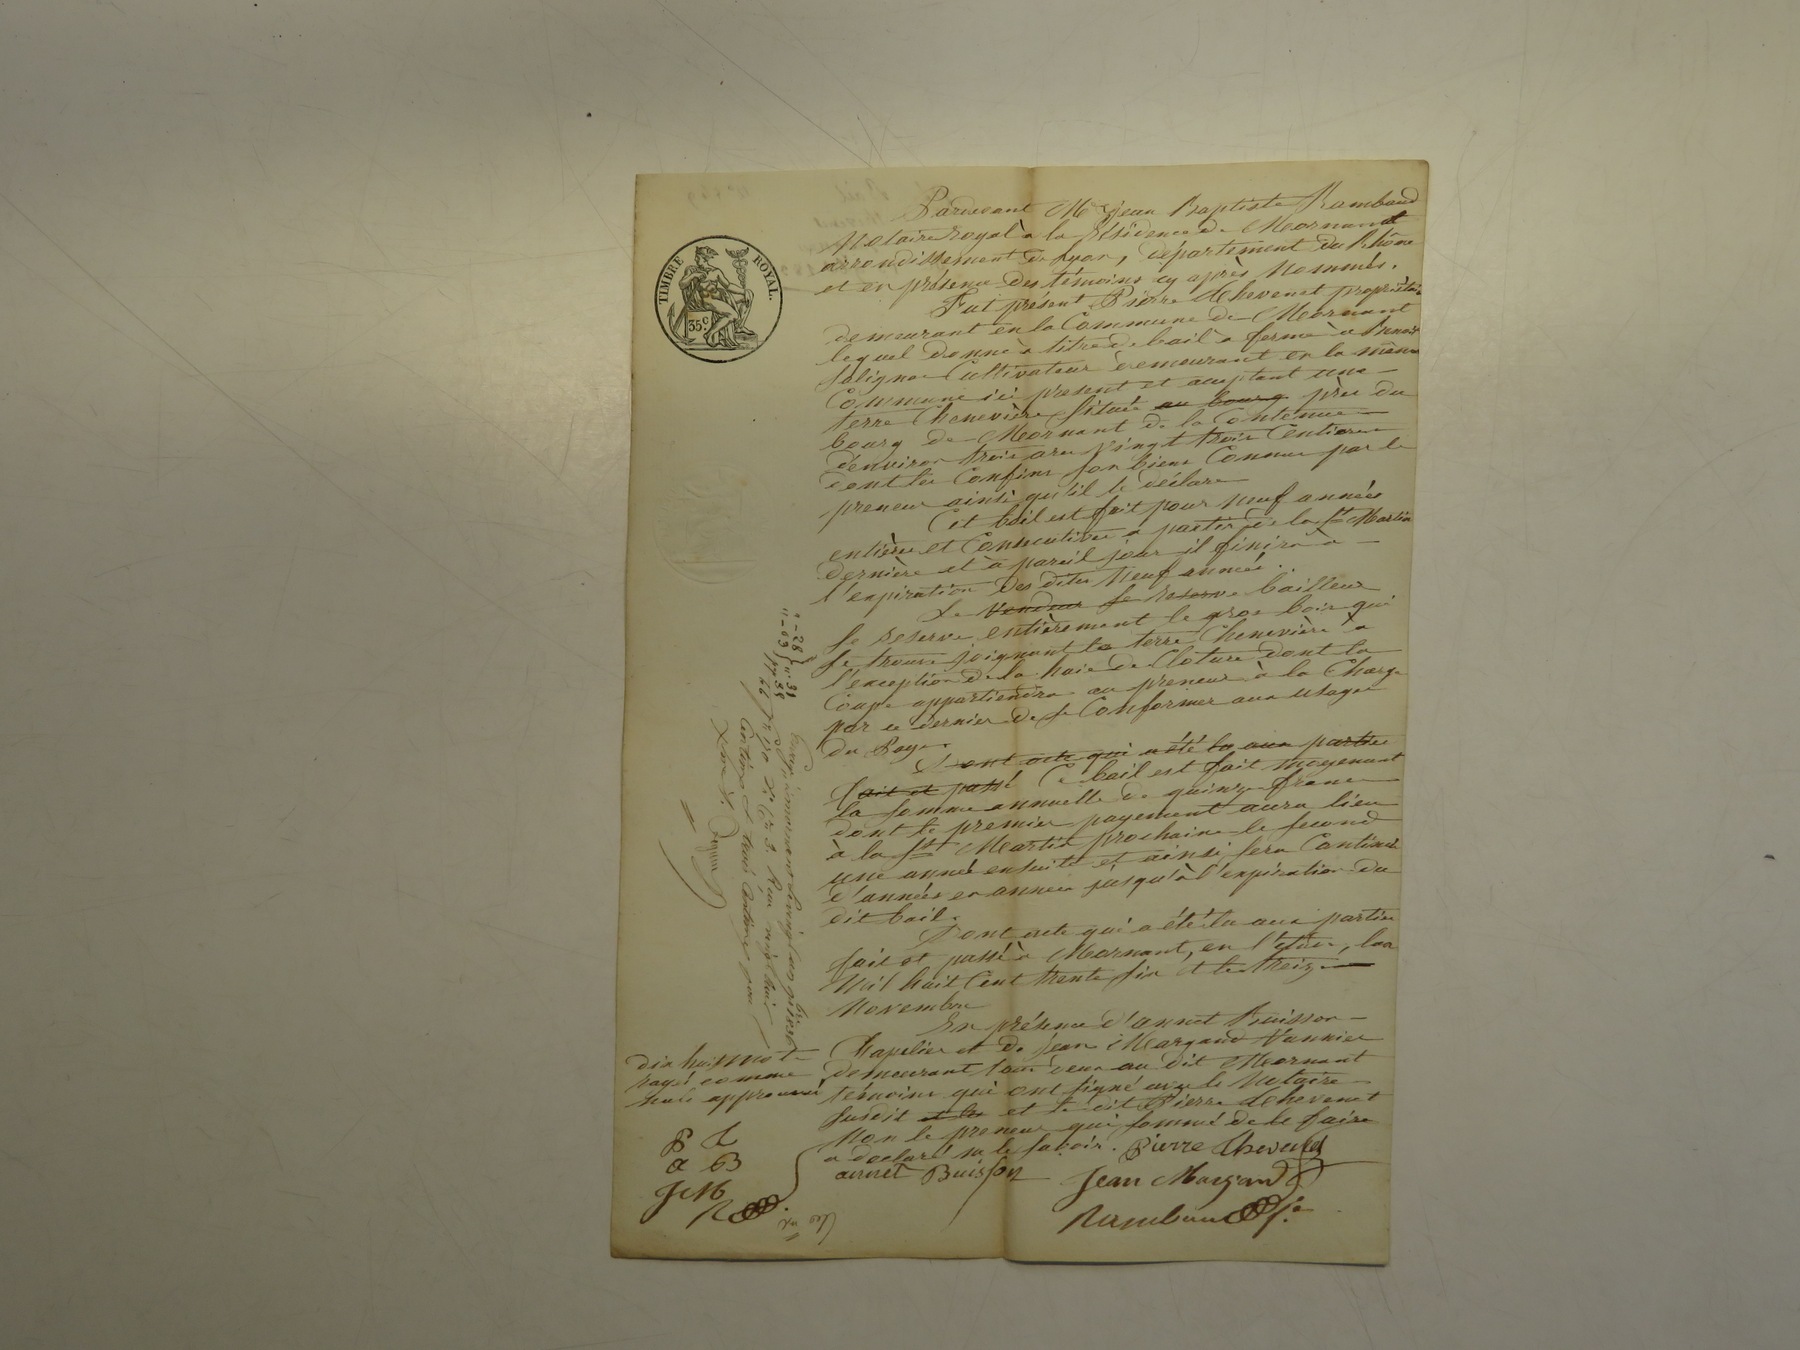 TIMBRE ROYAL.
35 c.
Pardevant Me Jean Baptiste Rambaud
Notaire royal à la Résidence de Mornant
arrondissement de Lyon, département du Rhône
et en présence des témoins cy après Nommés.
Fut présent Pierre Thevenet propriétaire
demeurant en la Commune de Mornant
lequel donne à titre de bail à ferme à Benoit
Cultivateur demeurant en la même
Commune ici présent et acceptant une
terre Chenevière située au bourg près du
bourg de Mornant de la Contenue
d'environ trois ares Vingt trois Centiares
dont les Confins son biens Connus par le
preneur ainsi qu'il le déclare
Cet bail est fait pour neuf années
entières et Consecutives à partir de la St Martin
dernière et à pareil jour il finira à
l'expiration des dites Neuf années..
Le Vendeur se reserve bailleur
se reserve entièrement le gros bois qui
se trouve joignant la terre Chenevière à
l'exception de la haie de Cloture dont la
Coupe appartiendra au preneur à la Charge
par ce dernier de se Conformer aux usages
du Pays.
Dont acte qui a été lu aux parties
fait et passé Ce bail est fait moyenant
la somme annuelle de quinze francs
dont le premier payement aura lieu
à la St Martin prochaine le second
une année ensuite et ainsi sera Continué
d'années en années jusqu'à l'expiration du
dit bail.
Dont acte qui a été lu aux parties
fait et passé à Mornant, en l'étude, l'an
Mil huit Cent trente six et le treize
Novembre
En présence d'annet Buisson
Chapelier et de Jean Margand Vannier
demeurant tous deux au dit Mornant
témoins qui ont signé avec le Notaire
susdit et les et le dit Pierre Thevenet
Non le preneur qui sommé de le faire
a declaré ne le savoir. Pierre Thevenet
annet Buisson
Jean Margand
Rambaud
dix huit mots
rayés comme
nuls approuvé
P T
a B
J M
R